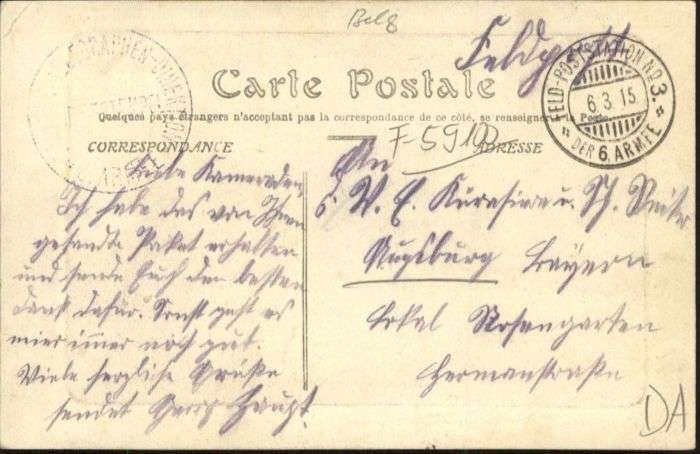 Belg
Feldpost
Carte Postale
Quelques pays étrangers n'acceptant pas la correspondance de ce côté, se renseigner à la Poste.
FELD-POSTSTATION No 3.
6.3.15
DER 6. ARMEE
F-5910
CORRESPONDANCE
ADRESSE
Liebe Kameraden,
Ich habe das von Ihnen
gesandte Paket erhalten
und sende Euch den besten
Dank dafür. Sonst geht es
mier imer noch gut.
Viele herzliche Grüße
sendet Georg Haupt.
An
V. E. Kürasiere u. Sch. Reiter
Augsburg Bayern
Lokal Rosengarten
Hermanstraße
DA